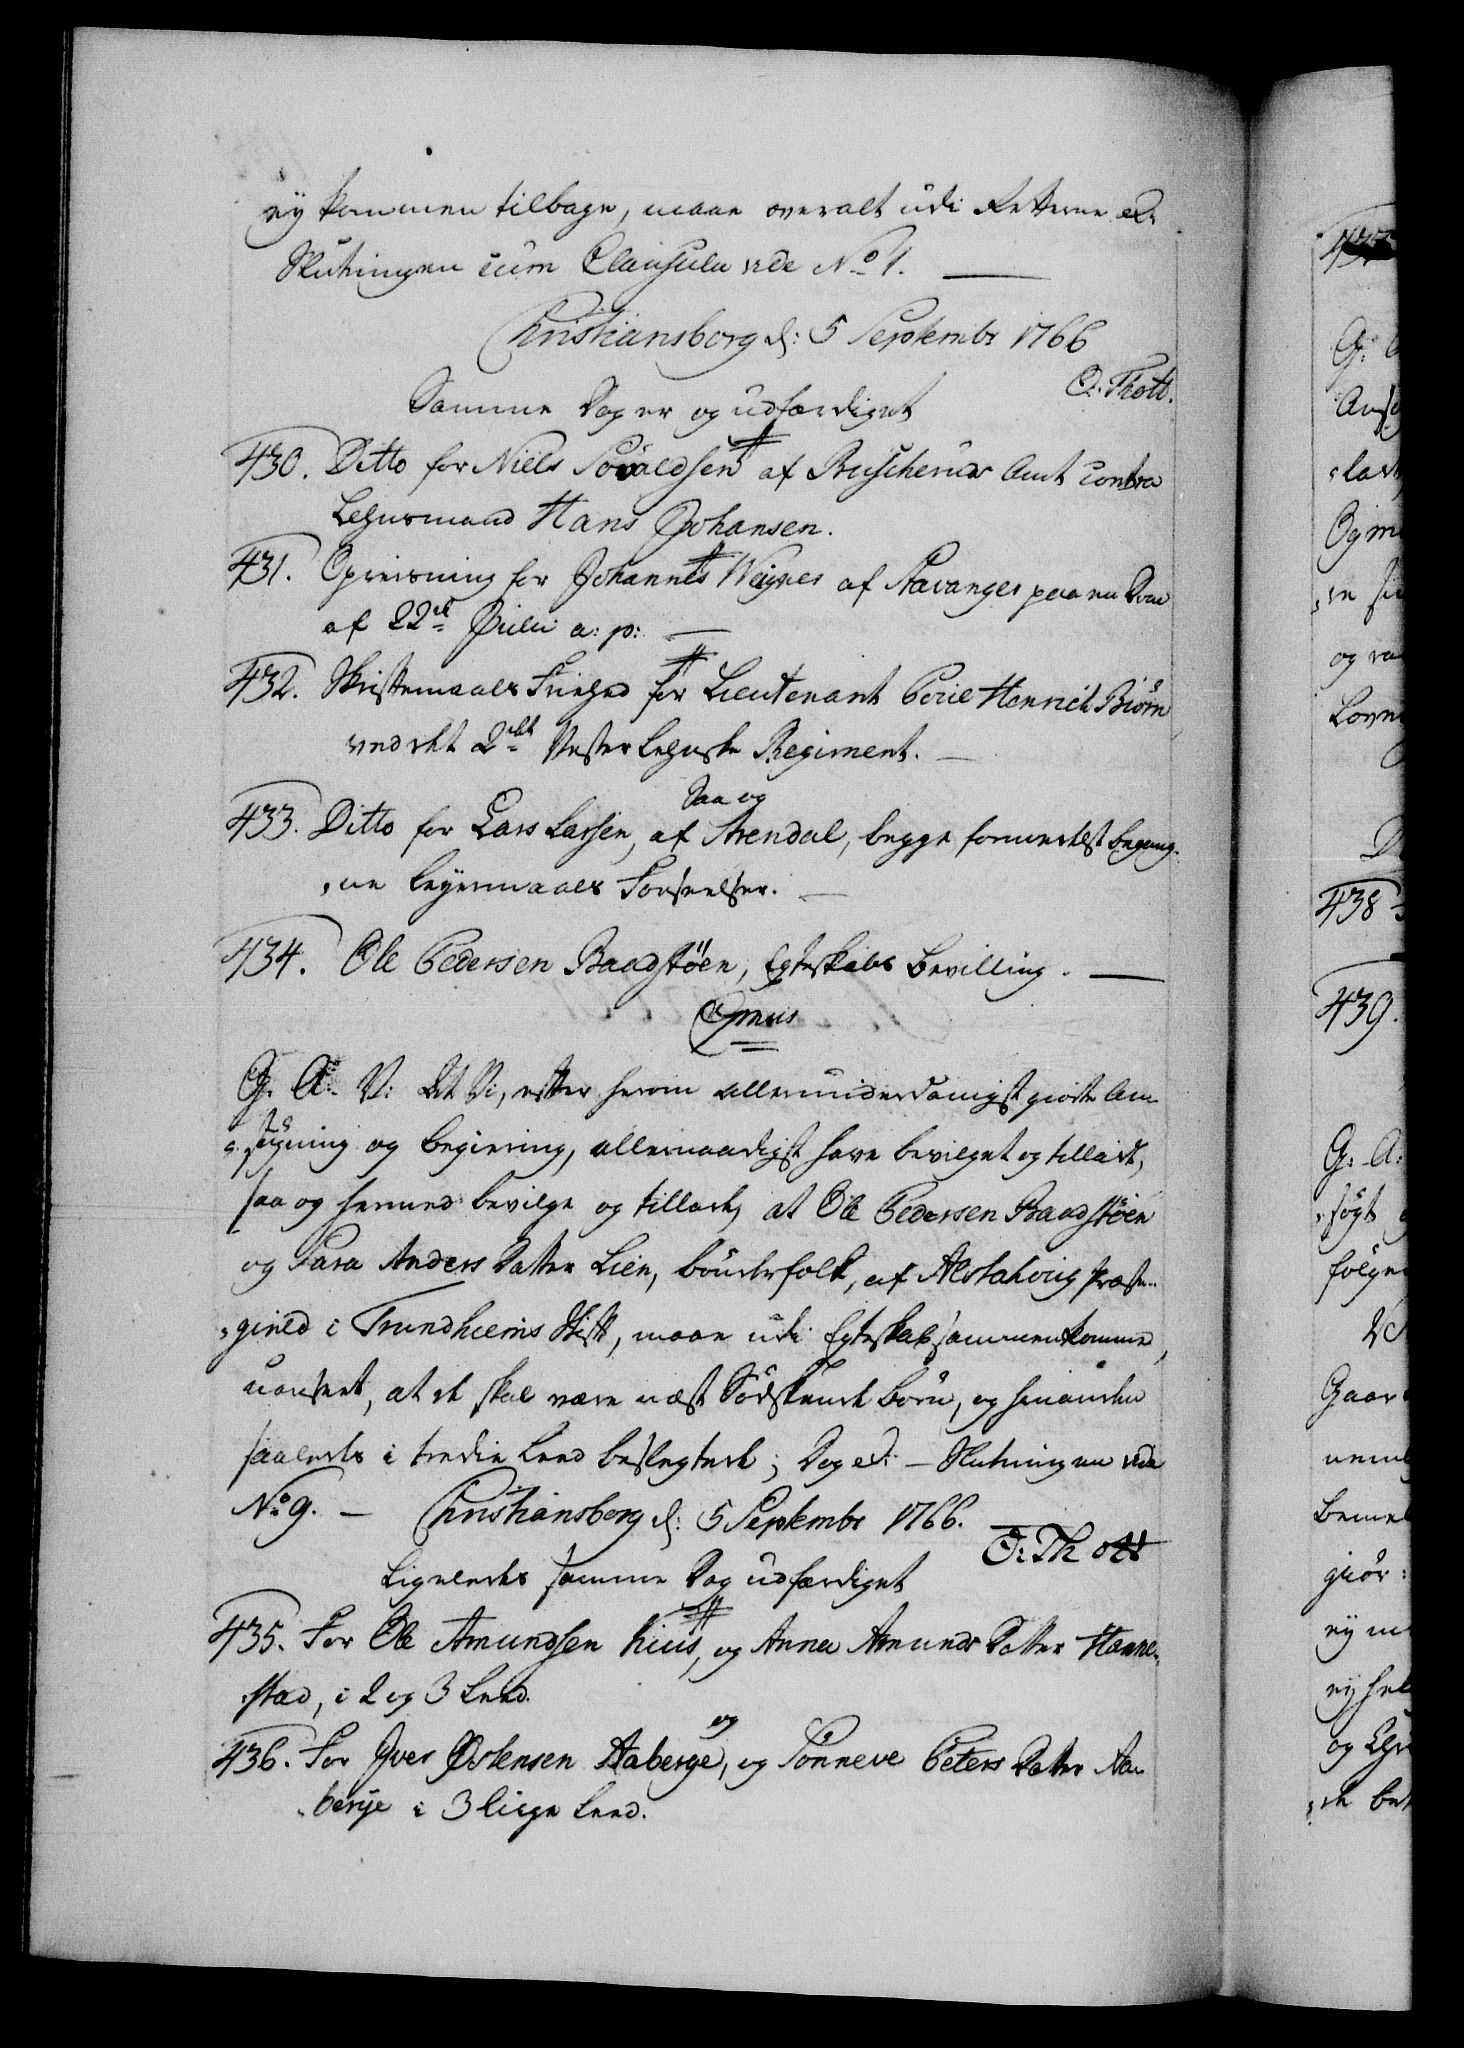 ey kommen tilbage, maae overalt udi Retterne etc
Slutningen cum Clausula vide No 1.
Christiansborg d: 5 Septembr 1766
O. Thott.
Samme Dag er og udfærdiget
430. Ditto for Niels Povaldsen af Buscheruds Amt contra
Lehnsmand Hans Johansen.
431. Opreisning for Johannes Weigner af Stavanger paa en Dom
af 22de Julii a: p:
432. Skriftemaals Friehed for Lieutenant Poul Henrich Biørn
ved det 2det Vesterlehnske Regiment.
Saa og
433. Ditto for Lars Larsen, af Arendal, begge formedelst begang-
ne Leyermaals Forseelser.
434. Ole Pedersen Baadstøen, Egteskabs Bevilling.
G. A. V: At Vi, efter herom allerunderdanigst giorte An-
søgning og Begiering, allernaadigst have bevilget og tilladt,
saa og hermed bevilge og tillade, at Ole Pedersen Baadstøen
og Sara Anders Datter Lien, Bønderfolk, af Alstahoug Præste-
gield i Trundhiems Stift, maae udi Egteskab sammenkomme,
uanseet, at de skal være næst Sødskende Børn, og hinanden
saaledes i tredie Leed beslegtede; Dog etc: - Slutningen vide
No 9. - Christiansborg d: 5 Septembr 1766.
O: Thott
Ligeledes samme Dag udfærdiget
435. For Ole Amundsen Kius, og Anna Amunds Datter Hanne-
stad, i 2 og 3 Leed.
og
436. For Iver Østensen Aaberge, og Sønneve Peters Datter Aa-
berge i 3 liige Leed.
437
G:
438
439.
G: A:
søgt
følge
Gaar
giør